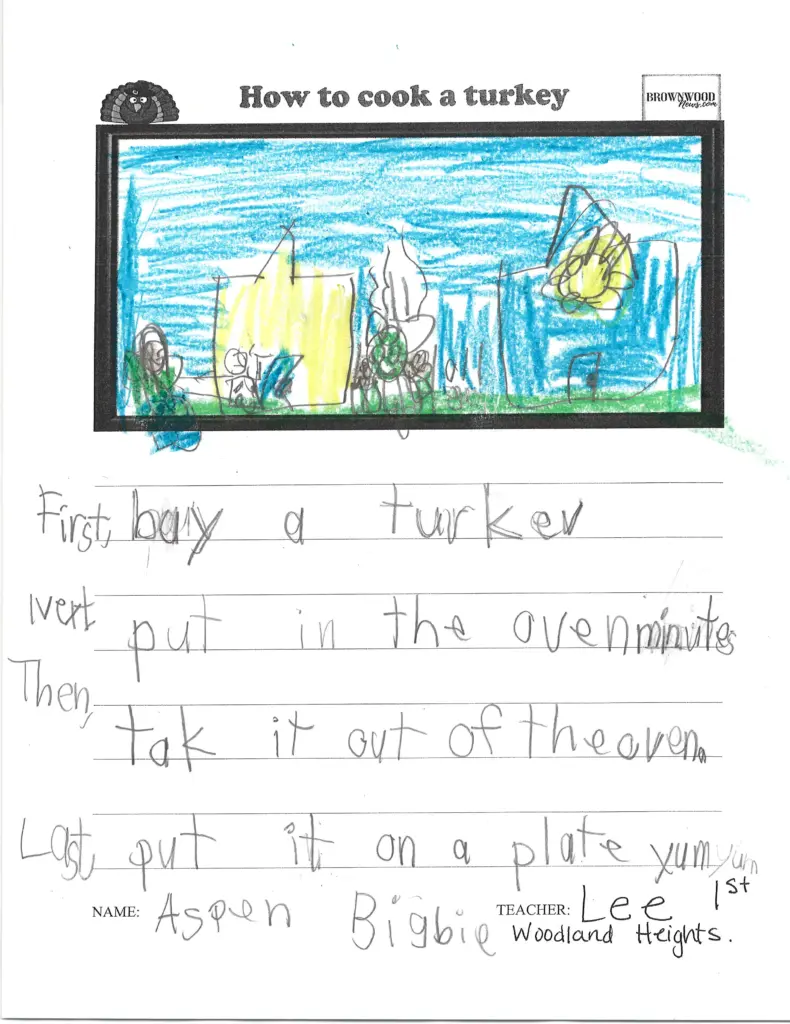 How to cook a turkey
BROWNWOOD
News.com
First, bay a turker
Next put in the oven minutes
Then,
tak it out of the oven.
Last, put it on a plate yum yum
NAME: Aspen Bigbie TEACHER: Lee 1st
Woodland Heights.